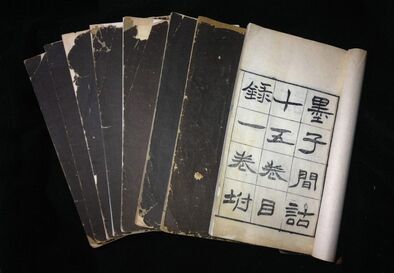 墨子閒詁
十五卷目
錄一卷坿